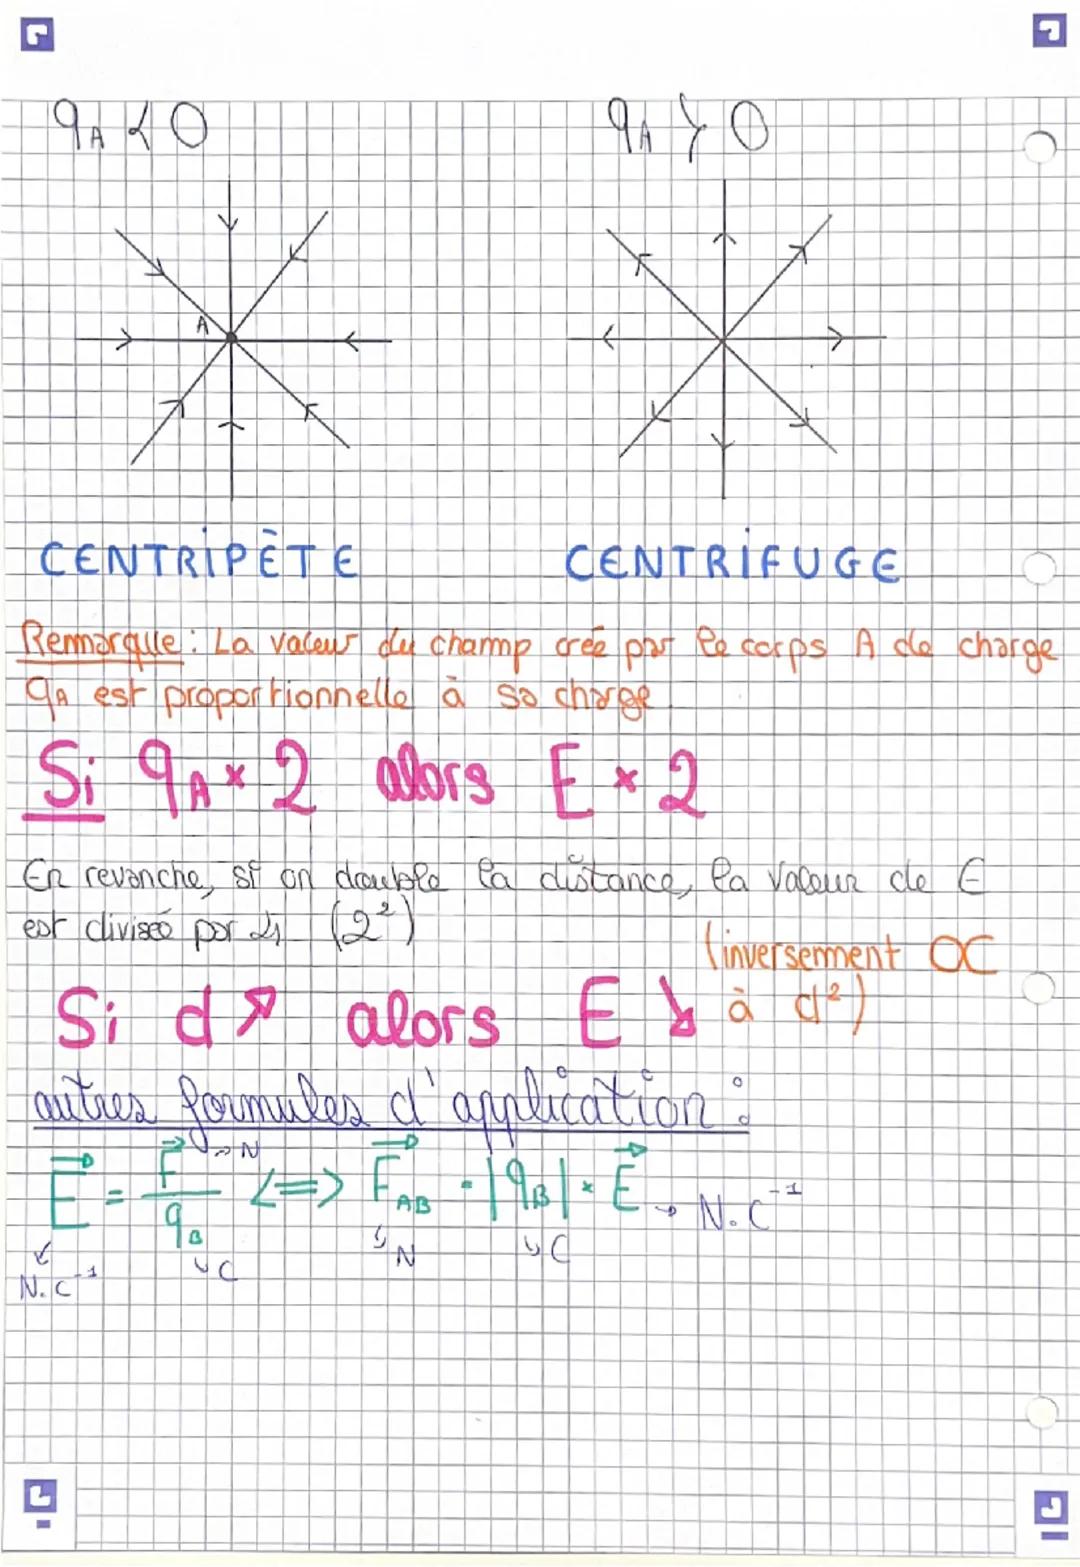 qA < 0 qA > 0
A
CENTRIPÈTE CENTRIFUGE
Remarque : La valeur du champ créé par le corps A de charge
qA est proportionnelle à sa charge.
Si qA × 2 alors E × 2
En revanche, si on double la distance, la valeur de E
est divisée par 4 (2²)
(inversement ∝
à d²)
Si d ↗ alors E ↘
autres formules d'application :
E⃗ = F⃗ / qB <=> F⃗AB = |qB| × E⃗ → N.C⁻¹
→ N
N.C⁻¹ C N C